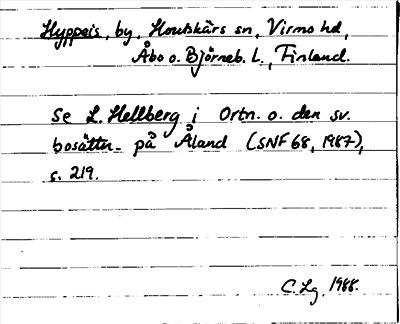 Hyppeis, by, Houtskärs sn, Virmo hd,
Åbo o. Björneb. L., Finland.
Se L. Hellberg i Ortn. o. den sv.
bosättn. på Åland (SNF 68, 1987),
s. 219.
C. Lg. 1988.